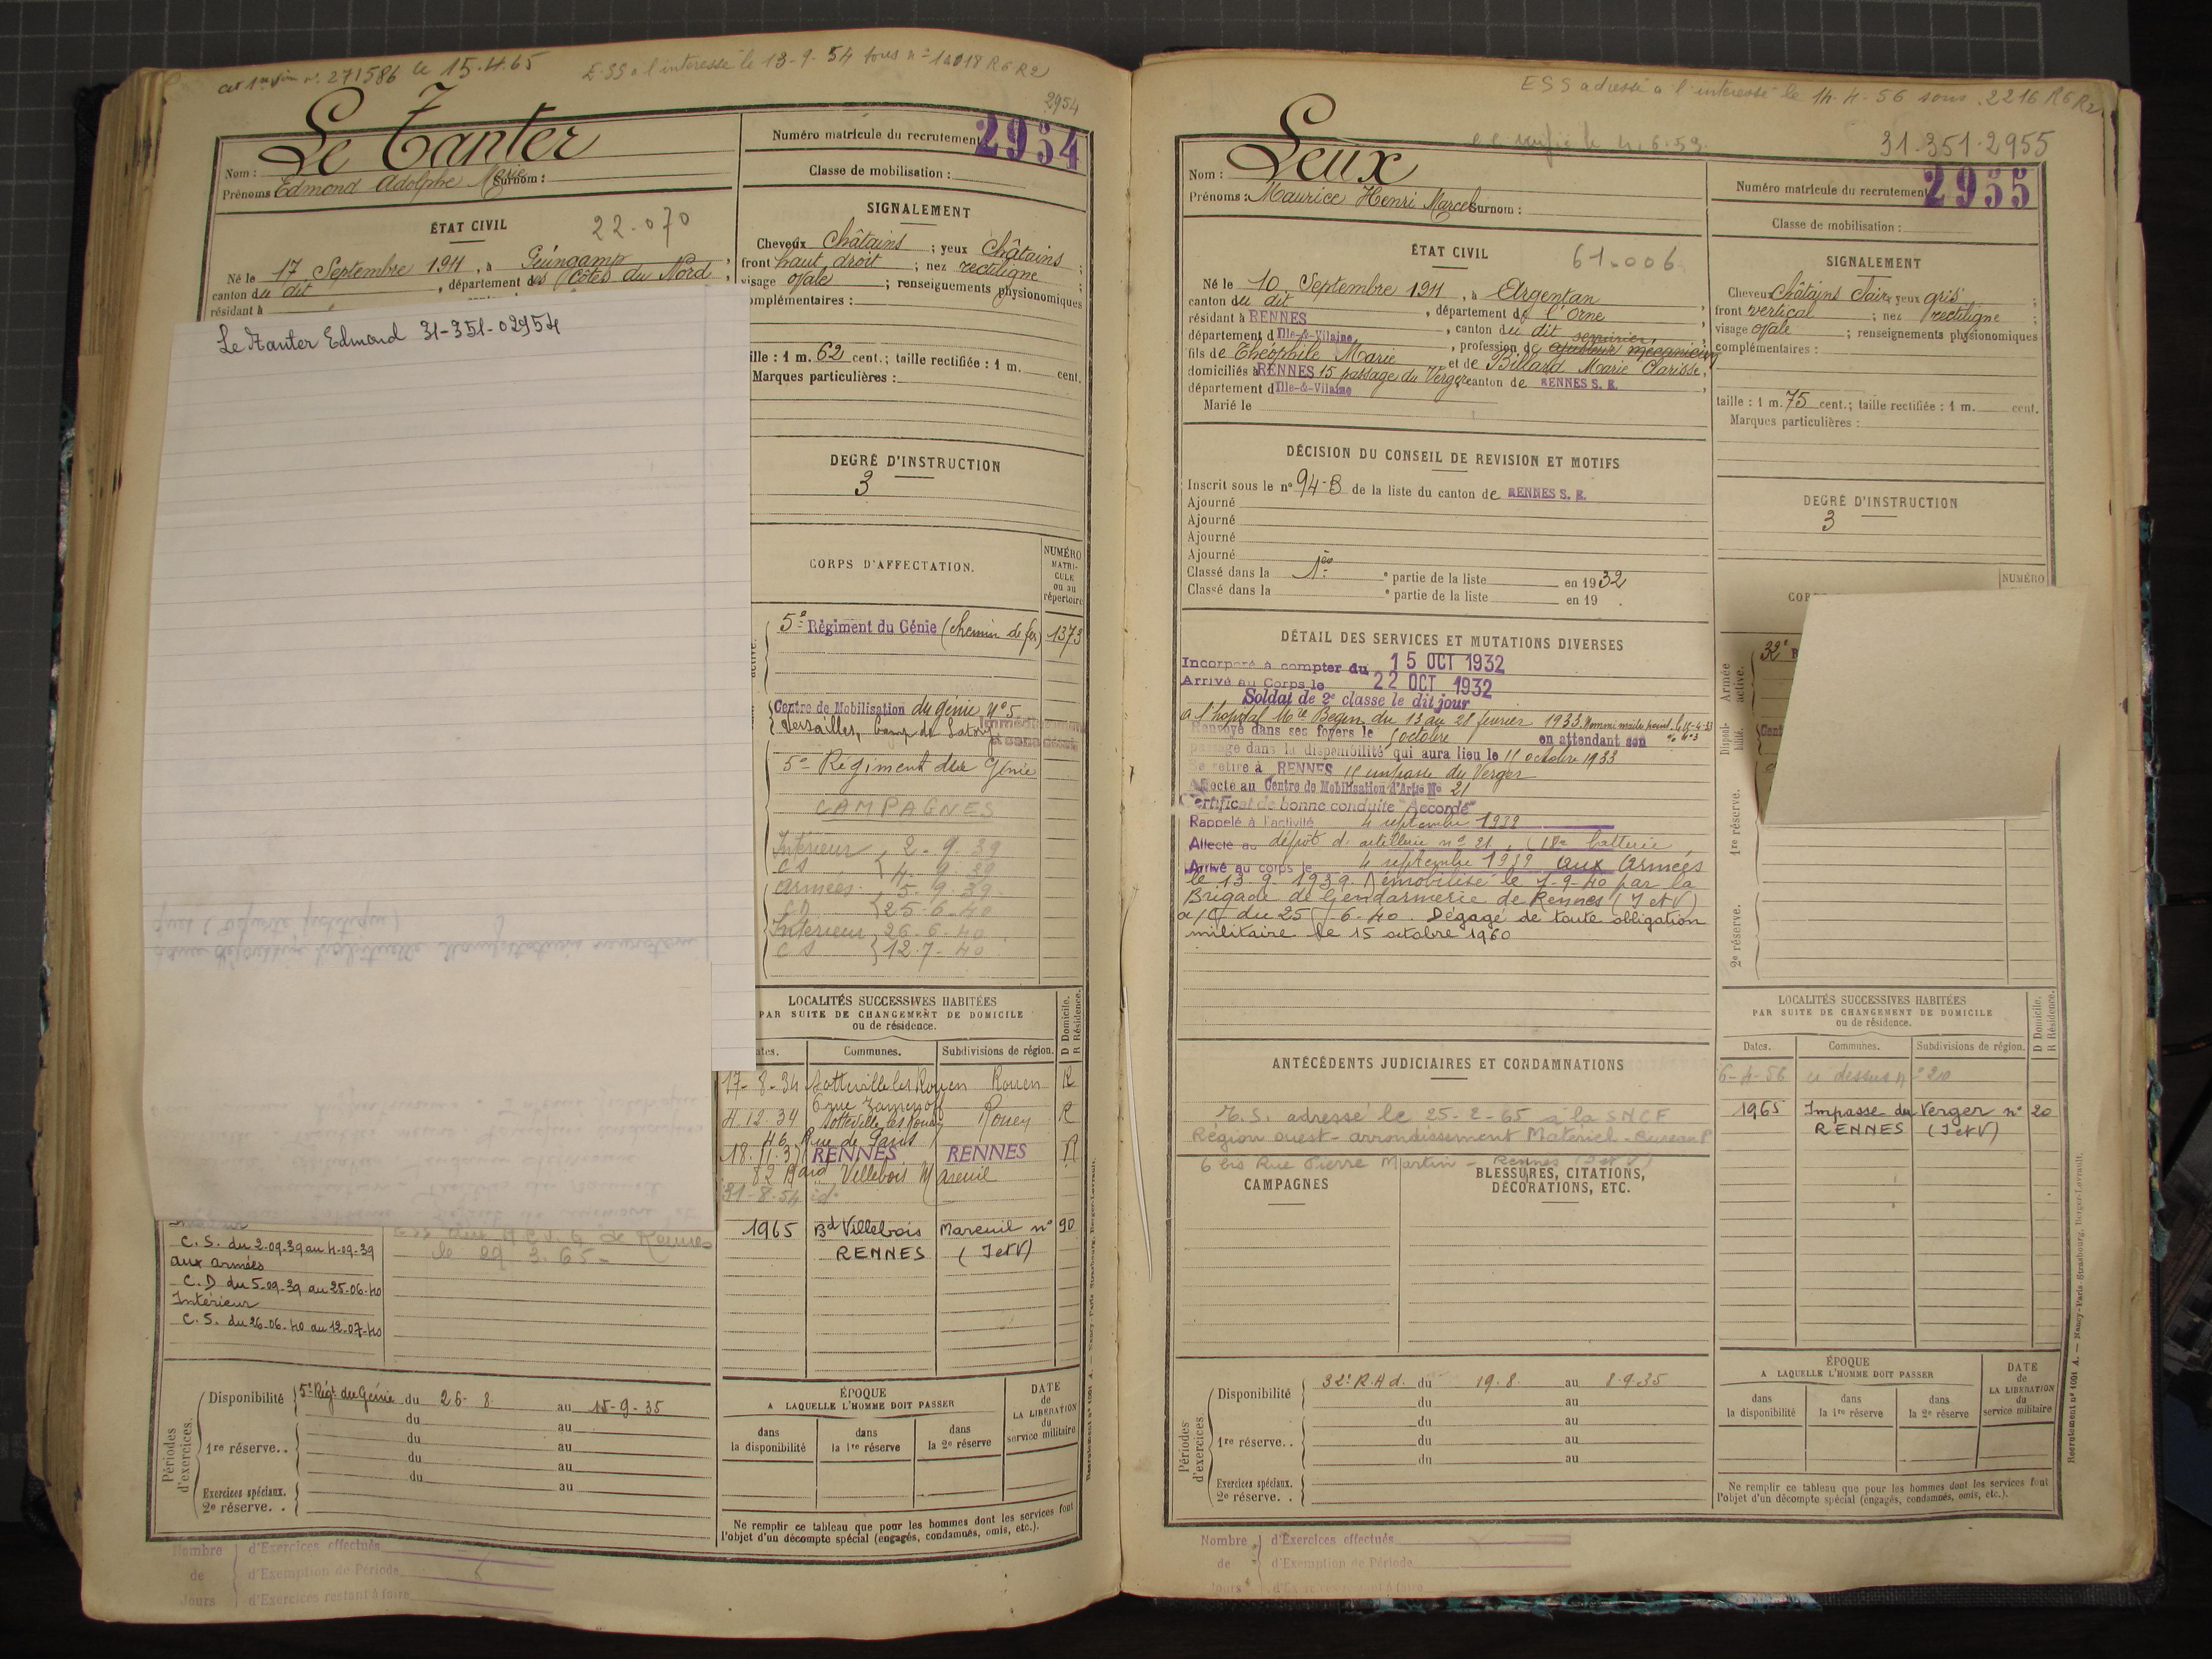 le 15.4.65
E.SS a l'interessé le 13-9-54 sous n° R6 R2
2954
Nom : Le Tanter
Prénoms Edmond Adolphe Marie Surnom :
Numéro matricule du recrutement 2954
Classe de mobilisation :
ÉTAT CIVIL
22.070
Né le 17 Septembre 1911, à Guingamp,
canton du dit, département des Côtes du Nord,
résidant à
SIGNALEMENT
Cheveux Châtains ; yeux Châtains ;
front haut droit ; nez rectiligne ;
visage ovale ; renseignements physionomiques
complémentaires :
Le Tanter Edmond 31-351-02954
ille : 1 m. 62 cent.; taille rectifiée : 1 m. cent.
Marques particulières :
DEGRÉ D'INSTRUCTION
3
CORPS D'AFFECTATION.
NUMÉRO
MATRI-
CULE
ou au
répertoire
5e Régiment du Génie (chemin de fer) 1373
Centre de Mobilisation du génie N°5
Versailles, Camp de Satory
5e Régiment du Génie
CAMPAGNES
Intérieur 2-9-39
CS 4-9-39
Armées 5-9-39
CD 25-6-40
Intérieur 26-6-40
CS 12-7-40
LOCALITÉS SUCCESSIVES HABITÉES
PAR SUITE DE CHANGEMENT DE DOMICILE
ou de résidence.
Dates. Communes. Subdivisions de région. D Domicile. R Résidence.
17-8-34 Sotteville les Rouen Rouen R
6 rue Zamenhof
4.12.34 Sotteville les Rouen Rouen R
46 Rue de Paris
18.11.37 RENNES RENNES R
82 Bard Villebois Mareuil
31-8-54 id.
1965 Bd Villebois Mareuil n° 90
RENNES (I et V)
le 29.3.65
C.S. du 2-09-39 au 4-09-39
aux armées
C.D du 5-09-39 au 25-06-40
Intérieur
C.S. du 26-06-40 au 12-07-40
Périodes d'exercices.
Disponibilité 5e Régt du Génie du 26-8. au 15-9-35
du au
1re réserve. . du au
du au
du au
Exercices spéciaux.
2e réserve. .
ÉPOQUE
A LAQUELLE L'HOMME DOIT PASSER
dans la disponibilité
dans la 1re réserve
dans la 2e réserve
DATE
de
LA LIBÉRATION
du
service militaire
Ne remplir ce tableau que pour les hommes dont les services font
l'objet d'un décompte spécial (engagés, condamnés, omis, etc.).
Nombre d'Exercices effectués
de d'Exemption de Période
Jours d'Exercices restant à faire
ESS adressé a l'interessé le 14-4-56 sous 2216 R6 R2
31-351-2955
Nom : Leux
Prénoms : Maurice Henri Marcel Surnom :
Numéro matricule du recrutement 2955
Classe de mobilisation :
ÉTAT CIVIL
61-006
Né le 10 Septembre 1911, à Argentan
canton du dit, département de l'Orne
résidant à RENNES, canton du dit
serrurier
département d'Ille-&-Vilaine, profession de ajusteur mécanicien
fils de Théophile Marie et de Billard Marie Clarisse,
domiciliés à RENNES 15 passage du Verger canton de RENNES S. E.
département d'Ille-&-Vilaine
Marié le
SIGNALEMENT
Cheveux Châtains clair yeux gris ;
front vertical ; nez rectiligne ;
visage ovale ; renseignements physionomiques
complémentaires :
taille : 1 m. 75 cent.; taille rectifiée : 1 m. cent.
Marques particulières :
DEGRÉ D'INSTRUCTION
3
DÉCISION DU CONSEIL DE REVISION ET MOTIFS
Inscrit sous le n° 94-B de la liste du canton de RENNES S. E.
Ajourné
Ajourné
Ajourné
Ajourné
Classé dans la 1ère partie de la liste en 1932
Classé dans la e partie de la liste en 19 .
DÉTAIL DES SERVICES ET MUTATIONS DIVERSES
Incorporé à compter du 15 OCT 1932
Arrivé au Corps le 22 OCT 1932
Soldat de 2e classe le dit jour
a l'hopital Mre Begin du 13 au 28 fevrier 1933.
Renvoyé dans ses foyers le octobre en attendant son
passage dans la disponibilité qui aura lieu le 11 octobre 1933
Se retire à RENNES impasse du Verger
Affecté au Centre de Mobilisation d'Artie N° 21
Certificat de bonne conduite "Accordé"
Rappelé à l'activité 4 septembre 1939
Affecté au dépôt d'artillerie n° 21, 18e batterie
Arrivé au corps le 4 septembre 1939 aux Armées
le 13.9.1939. Démobilisé le 7-9-40 par la
Brigade de Gendarmerie de Rennes (I et V)
a/c du 25-6-40. Dégagé de toute obligation
militaire le 15 octobre 1960
NUMÉRO
Armée active.
32e
Disponibilité.
1re réserve.
2e réserve.
ANTÉCÉDENTS JUDICIAIRES ET CONDAMNATIONS
adressé le 25-2-65 à la SNCF
Région ouest - arrondissement Matériel - Bureau P
6 bis Rue Pierre Martin - Rennes (I et V)
CAMPAGNES
BLESSURES, CITATIONS,
DÉCORATIONS, ETC.
LOCALITÉS SUCCESSIVES HABITÉES
PAR SUITE DE CHANGEMENT DE DOMICILE
ou de résidence.
Dates. Communes. Subdivisions de région. D Domicile. R Résidence.
6-4-56 ci dessus n° 20
1965 Impasse du Verger n° 20
RENNES (I et V)
Périodes d'exercices.
Disponibilité 32e R.A.d. du 19.8. au 8.9.35
du au
1re réserve. . du au
du au
du au
Exercices spéciaux.
2e réserve. .
ÉPOQUE
A LAQUELLE L'HOMME DOIT PASSER
dans la disponibilité
dans la 1re réserve
dans la 2e réserve
DATE
de
LA LIBÉRATION
du
service militaire
Ne remplir ce tableau que pour les hommes dont les services font
l'objet d'un décompte spécial (engagés, condamnés, omis, etc.).
Recrutement n° 1001 A. — Nancy-Paris-Strasbourg, Berger-Levrault.
Nombre d'Exercices effectués
de d'Exemption de Période
Jours d'Exercices restant à faire